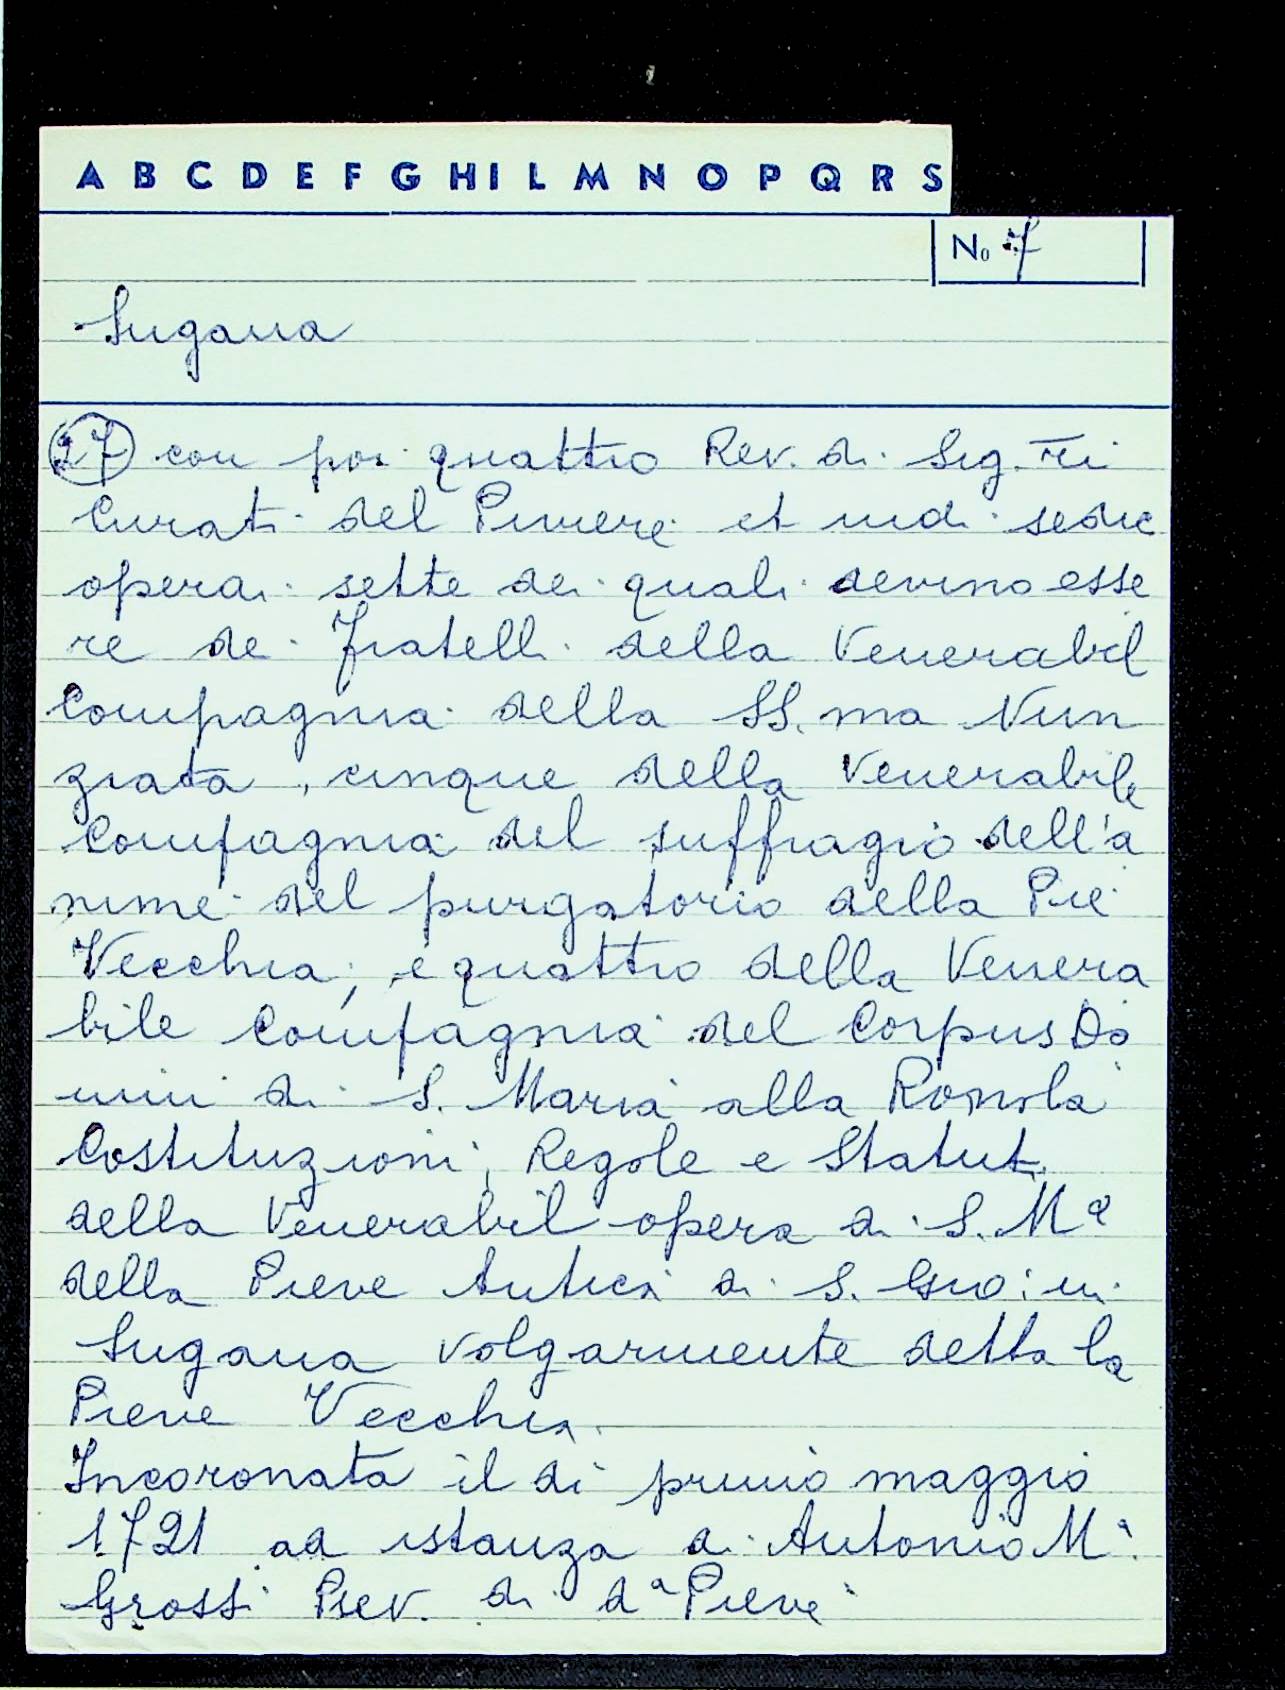 A B C D E F G H I L M N O P Q R S
No 7
Sugana
27 con poi quattro Rev. di Sig. ri
Curati del Piviere et indi sedic
operai sette dei quali devino esse
re de Fratelli della Venerabil
Compagnia della SS. ma Nun
ziata, cinque della Venerabile
Compagnia del suffragio dell'a
nime del purgatorio della Pie
Vecchia, e quattro della Venera
bile Compagnia del Corpus Do
mini di S. Maria alla Romola
Costituzioni, Regole e Statuti
della Venerabil opera di S. Mª
della Pieve Antica di S. Gio: in
Sugana volgarmente detta la
Pieve Vecchia.
Incoronata il di primo maggio
1721 ad istanza di Antonio Mª
Grossi Piev. di dª Pieve